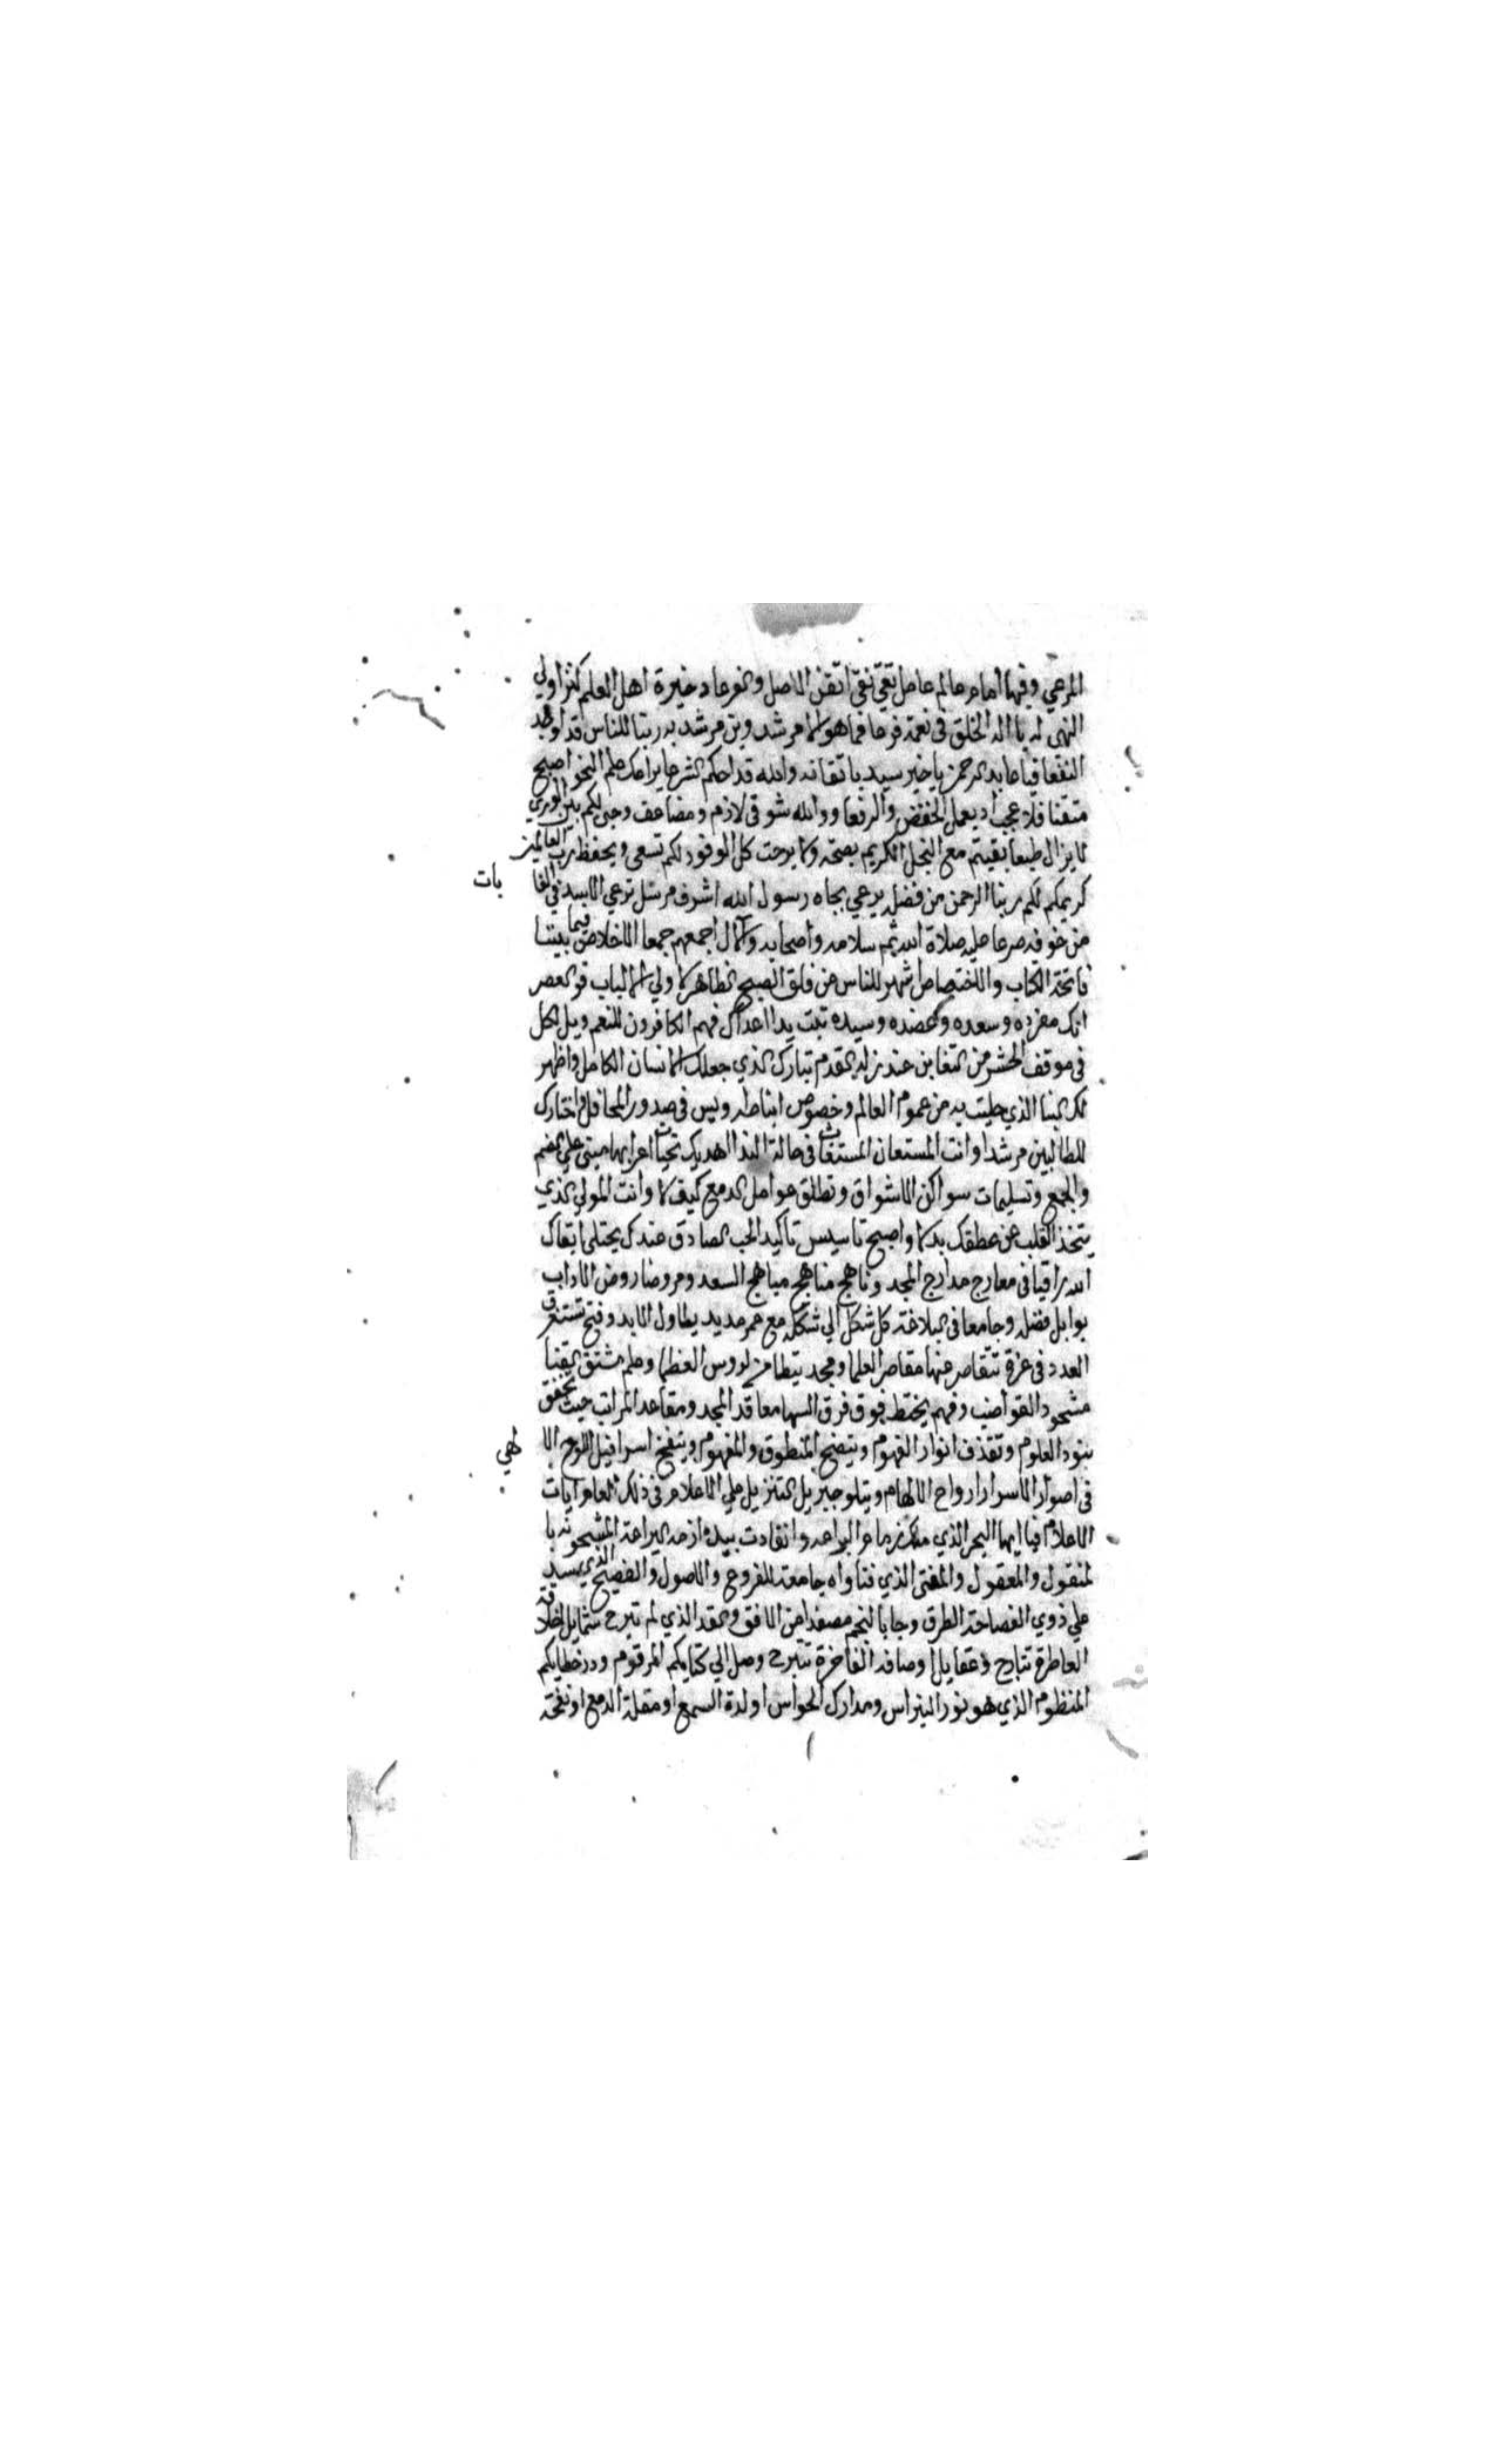 المرعي وفيها امام عالم عامل تقي نقي اتقن الاصل والفرعا ذخيرة اهل العلم كنز اولي
النهى له يا اله الخلق في نعمة فرحا فما هو الا مرشد وبن مرشد به ربنا للناس قد اوجد
النفعا فيا عابد الرحمن يا خير سيد باتقانه والله قد احكم الشرعا يراعك علم النحو اصبح
متقنا فلا عجب اذ يعمل الخفض والرفعا ووالله شوقي لازم ومضاعف وحبي لكم بين الوري
لا يزال طبعا بقيتم مع النجل الكريم بصحة ولا برحت كل الوفود لكم تسعى ويحفظ رب العالمين
كريمكم لكم ربنا الرحمن من فضله يرعي بجاه رسول الله اشرف مرسل ترعي الاسد في الغا
بات
من خوفه صرعا عليه صلاة الله ثم سلامه واصحابه والال اجمعهم جمعا الاخلاص فيما بيننا
فاتحة الكتاب والاختصاص اشهر للناس من فلق الصبح الظاهر لاولي الالباب فوالعصر
انك مفرده وسعده وعضده وسيده تبت يدا اعداك فهم الكافرون للنعم ويل لكل
في موقف الحشر من التغابن عند زلة القدم تبارك الذي جعلك الانسان الكامل واظهر
لك النبا الذي حليت به من عموم العالم وخصوص ابناطه ويس في صدور المحافل واختارك
للطالبين مرشدا وانت المستعان المستغاث في حالة الندا اهديك تحيات اعرابها مبني علي الضم
والجمع وتسليمات سواكن الاشواق وتطلق عوامل الدمع كيف لا وانت المولي الذي
يتخذ القلب عن عطفك بدلا واصبح تاسيس تاكيد الحب الصادق عندك يجتلي ابقاك
الله راقيا في معارج مدارج المجد وناهج مناهج مباهج السعد ومروضا روض الاداب
بوابل فضله وجامعا في البلاغة كل شكل الي شكله مع عمر مديد يطاول الابد وفتح تستغرق
العدد في عزة تتقاصر عنها مقاصر العلما ومجد يتطامن لروس العظما وعلم مشتق القنا
مشحوذ القواضب وفهم يختط فوق فرق السها معاقد المجد ومقاعد المراتب حيث تخفق
بنود العلوم وتقذف انوار الفهوم ويتضح المنطوق والمفهوم وينفخ اسرافيل اللوح الا
لهي
في اصوار الاسرار ارواح الالهام ويتلو جبريل التنزيل علي الاعلام في ذلك العام ايات
الاعلام فيا ايها البحر الذي ملك زمام البراعه وانقادت بيده ازمة اليراعة المشحونه با
لمنقول والمعقول والمفتي الذي فتاواه جامعة للفروع والاصول والفصيح الذي يسد
علي ذوي الفصاحة الطرق وجا بالنجم مصفدا من الافق والعقد الذي لم تبرح شمايل اخلاقه
العاطرة تتارج وعقايل اوصافه الفاخرة تتبرج وصل الي كتابكم المرقوم ودر خطابكم
المنظوم الذي هو نور النبراس ومدارك الحواس اولدة السمع او مقلة الدمع او نفحة